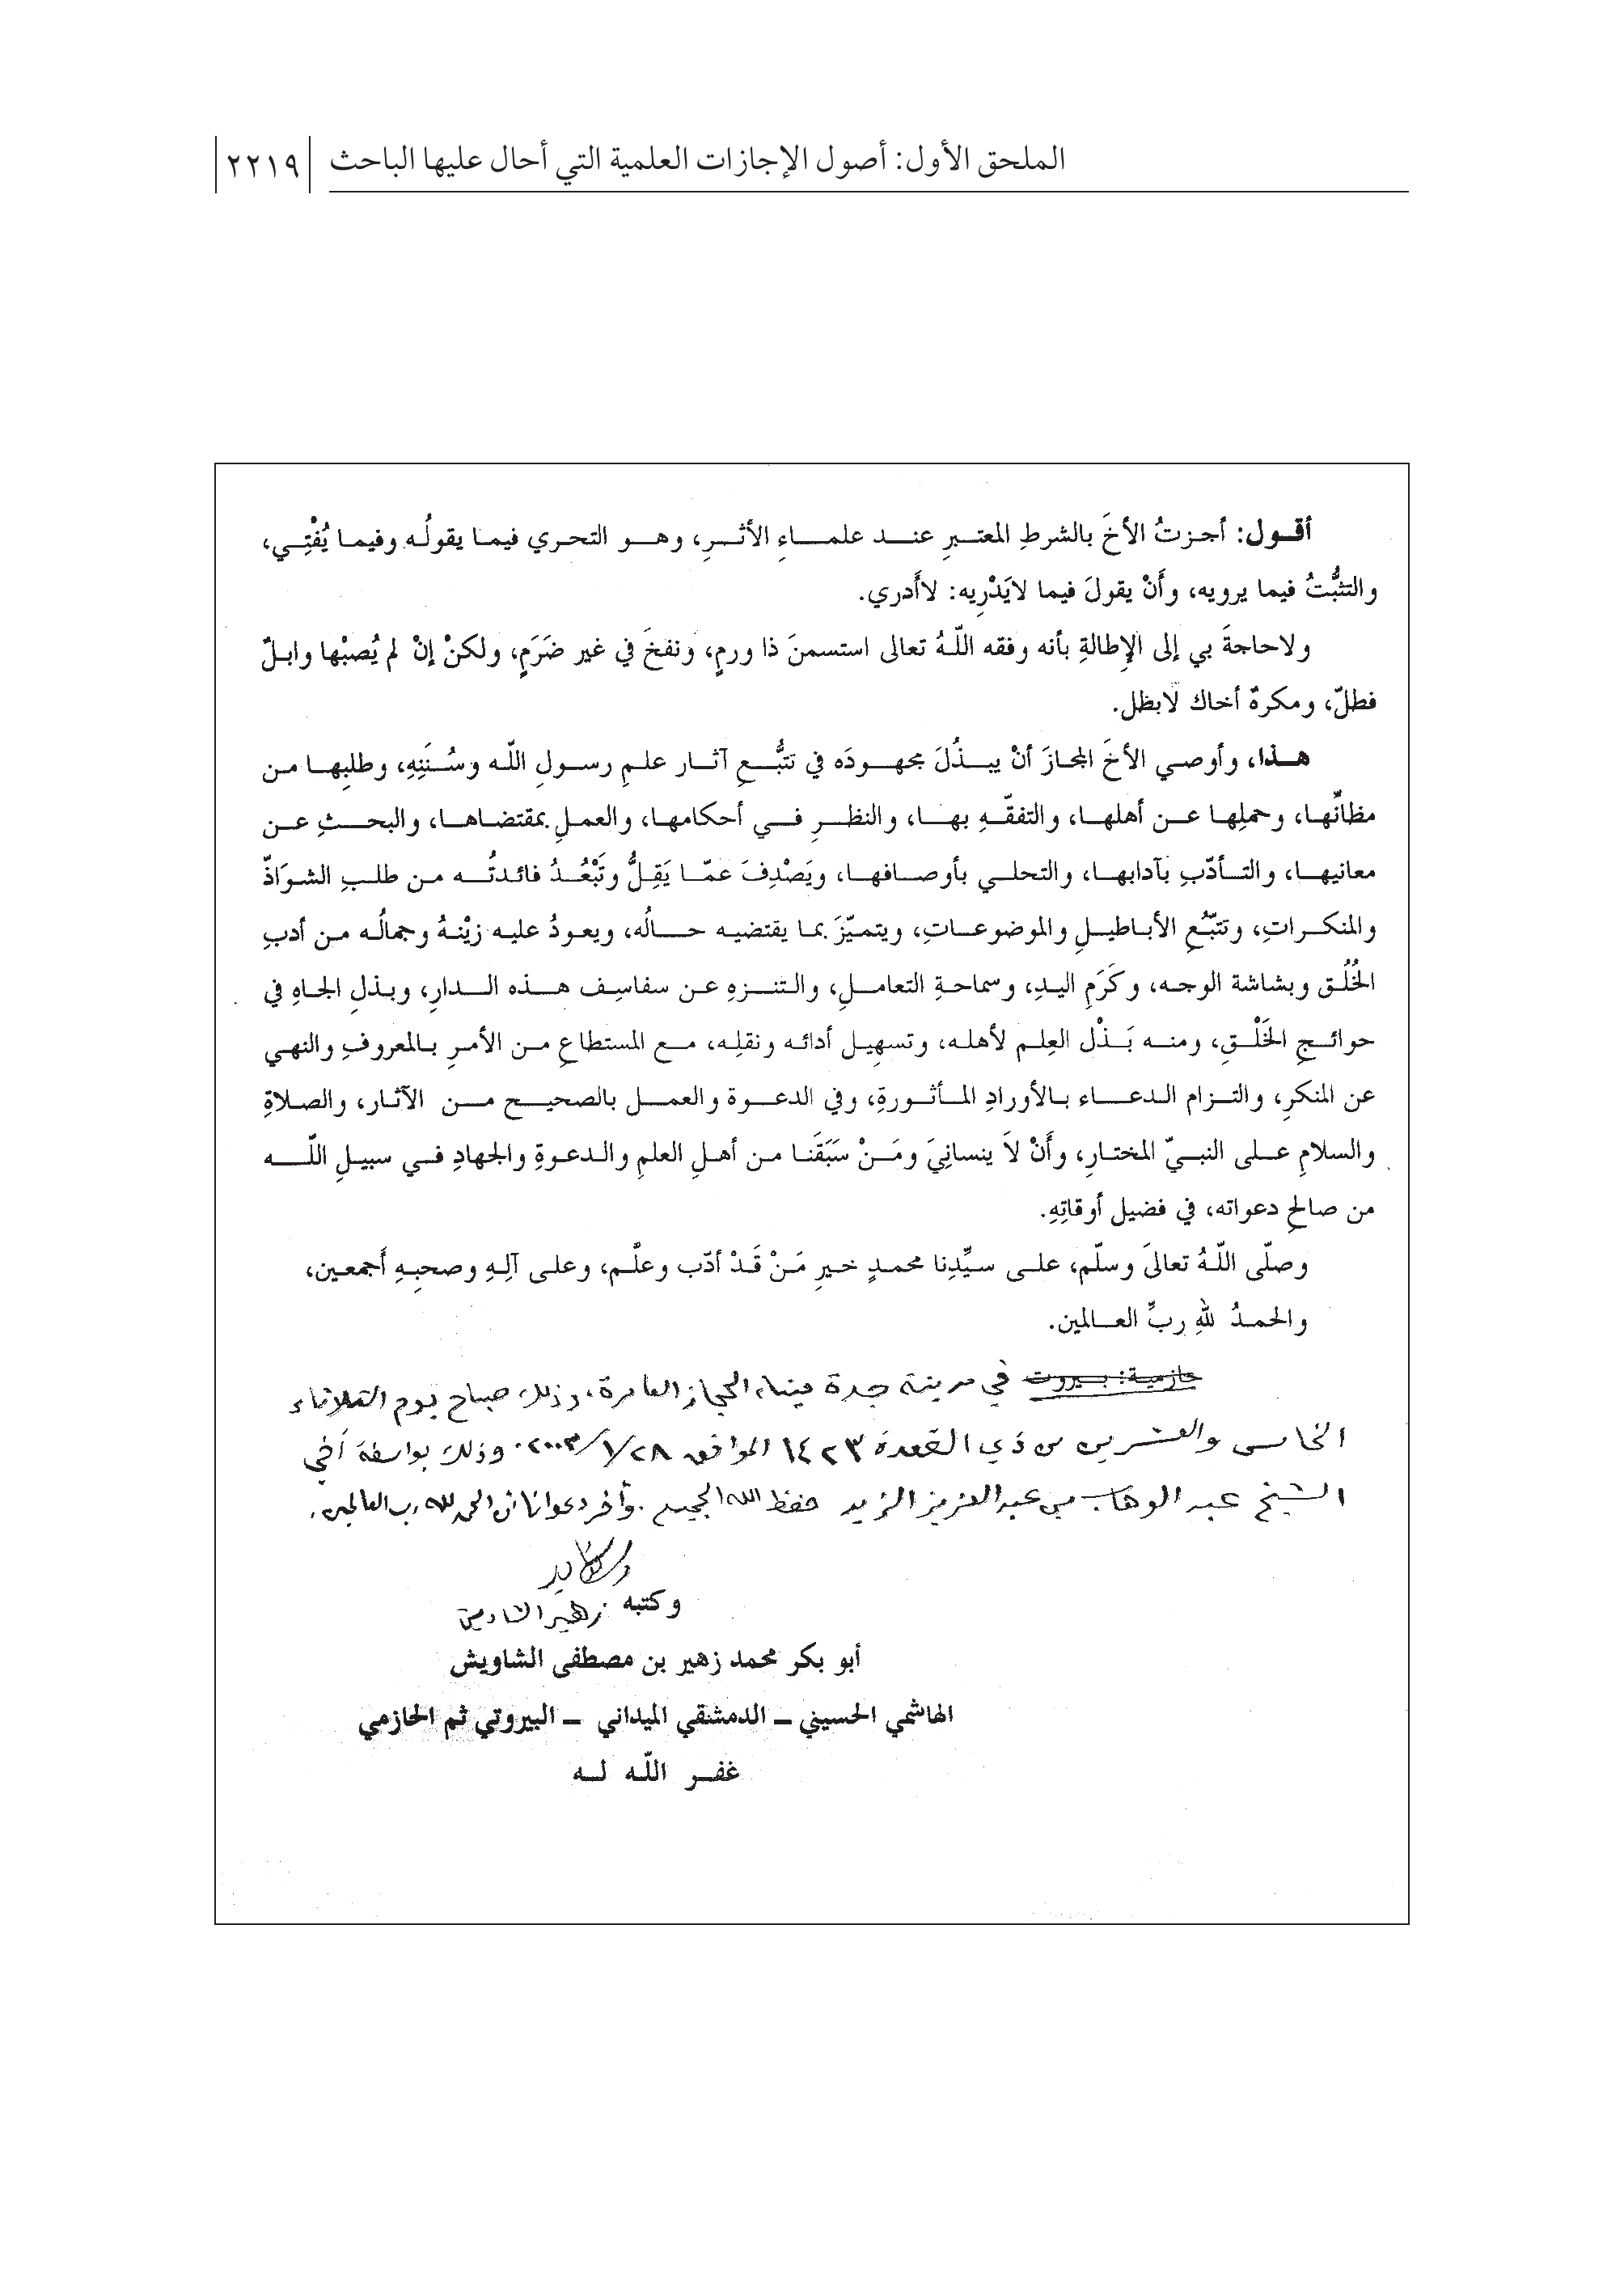 الملحق الأول: أصول الإجازات العلمية التي أحال عليها الباحث ٢٢١٩
أقــول: أجـزتُ الأخَ بالشرطِ المعتـبرِ عنـد علمـاءِ الأثـرِ، وهـو التحري فيمـا يقولُـه وفيمـا يُفْتِـي،
والتثبُّتُ فيما يرويه، وأَنْ يقولَ فيما لايَدْرِيه: لاأَدري.
ولاحاجةَ بي إلى الإِطالةِ بأنه وفقه اللّـهُ تعالى استسمنَ ذا ورمٍ، ونفخَ في غير ضَرَمٍ، ولكنْ إنْ لم يُصبْها وابـلٌ
فطلّ، ومكرهٌ أخاك لابظل.
هــذا، وأوصـي الأخَ المجازَ أنْ يبـذُلَ مجهـودَه في تتبُّـعِ آثـار علـمِ رسـولِ اللّـه وسُـنَنِهِ، وطلبِهـا مـن
مظانّها، وحملِهـا عـن أهلهـا، والتفقّـهِ بهـا، والنظـرِ فـي أحكامهـا، والعمـلِ بمقتضـاهـا، والبحـثِ عـن
معانيهـا، والتـأدّبِ بآدابهـا، والتحلـي بأوصـافهـا، ويَصْدِفَ عمّـا يَقِلُّ وتَبْعُـدُ فائدتُـه مـن طلـبِ الشـوَاذّ
والمنكـراتِ، وتتبّعِ الأبـاطيـلِ والموضوعـاتِ، ويتميّزَ بما يقتضيـه حـالُه، ويعـودُ عليـه زيْنـهُ وجمالُـه مـن أدبِ
الخُلُـق وبشاشة الوجـه، وكَرَمِ اليـدِ، وسماحـةِ التعامـلِ، والتنـزهِ عـن سفاسِـف هـذه الـدارِ، وبـذلِ الجـاهِ في
حوائـجِ الخَلْـقِ، ومنـه بَـذْل العِلـم لأهلـه، وتسهِيـل أدائـه ونقلِـه، مـع المستطاعِ مـن الأمـرِ بـالمعروفِ والنهـي
عن المنكرِ، والتـزام الـدعـاء بـالأورادِ المـأثـورةِ، وفي الدعـوة والعمـل بالصحيـح مـن الآثـار، والصـلاةِ
والسلامِ علـى النبـيّ المختـارِ، وأَنْ لاَ ينسانِيَ ومَـنْ سَبَقَنـا مـن أهـلِ العلمِ والـدعـوةِ والجهـادِ فـي سبيـلِ اللّـه
من صالحِ دعواته، في فضيل أوقاتِهِ.
وصلّى اللّـهُ تعالىَ وسلّم، علـى سيِّدِنا محمـدٍ خـيرِ مَـنْ قَـدْ أدّب وعلّم، وعلـى آلِـهِ وصحبِـهِ أَجمعـين،
والحمـدُ للهِ ربِّ العـالمين.
حازمية: بـيروت في مدينة جدة ميناء الحجاز العامرة، وذلك صباح يوم الثلاثاء
الخامس والعشرين من ذي القعدة ١٤٢٣ الموافق ٢٠٠٣/١/٢٨. وذلك بواسطة أخي
الشيخ عبد الوهاب بن عبد العزيز الزيد حفظ الله الجميع. وآخر دعوانا أن الحمد لله رب العالمين.
وكتبه زهير الشاويش
أبو بكر محمد زهير بن مصطفى الشاويش
الهاشمي الحسيني – الدمشقي الميداني – البيروتي ثم الحازمي
غفـر اللّـه لـه